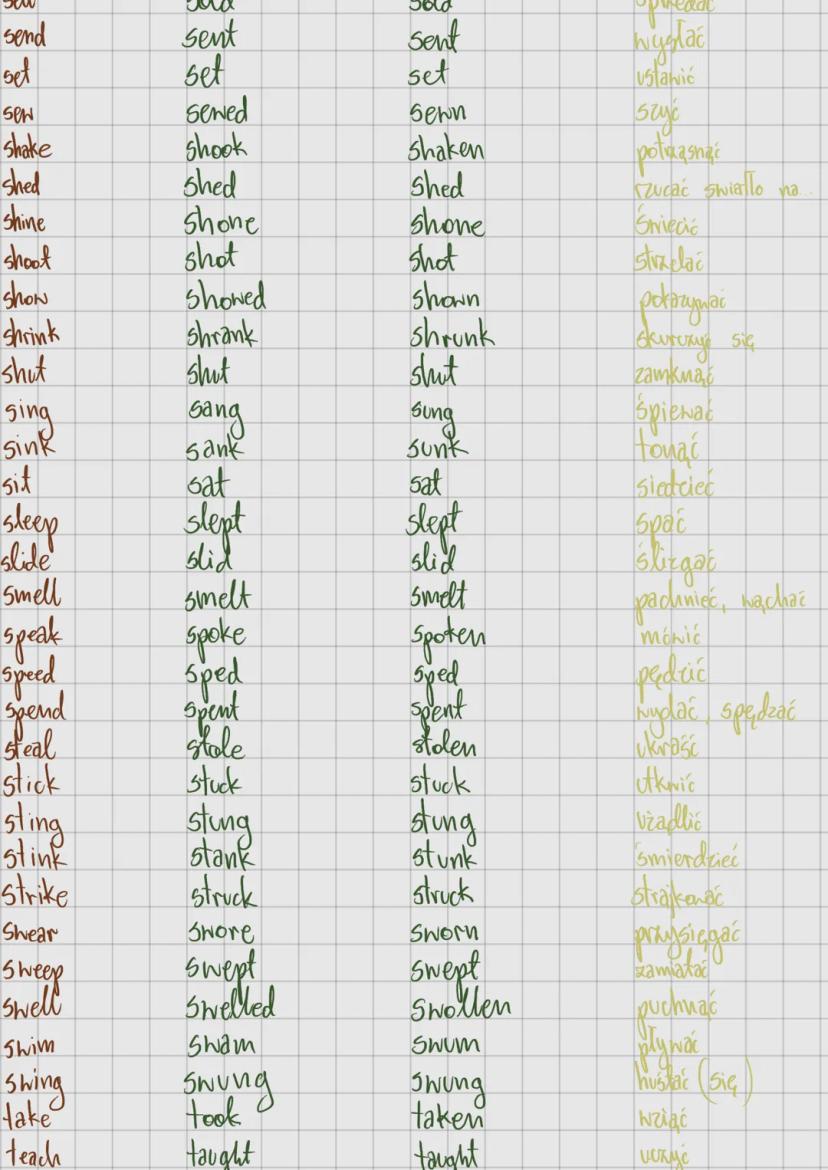 sell sold sold sprzedać
send sent sent wysłać
set set set ustawić
sew sewed sewn szyć
shake shook shaken potrząsnąć
shed shed shed rzucać światło na...
shine shone shone świecić
shoot shot shot strzelać
show showed shown pokazywać
shrink shrank shrunk skurczyć się
shut shut shut zamknąć
sing sang sung śpiewać
sink sank sunk tonąć
sit sat sat siedzieć
sleep slept slept spać
slide slid slid ślizgać
smell smelt smelt pachnieć, wąchać
speak spoke spoken mówić
speed sped sped pędzić
spend spent spent wydać, spędzać
steal stole stolen ukraść
stick stuck stuck utkwić
sting stung stung użądlić
stink stank stunk śmierdzieć
strike struck struck strajkować
swear swore sworn przysięgać
sweep swept swept zamiatać
swell swelled swollen puchnąć
swim swam swum pływać
swing swung swung huśtać (się)
take took taken wziąć
teach taught taught uczyć